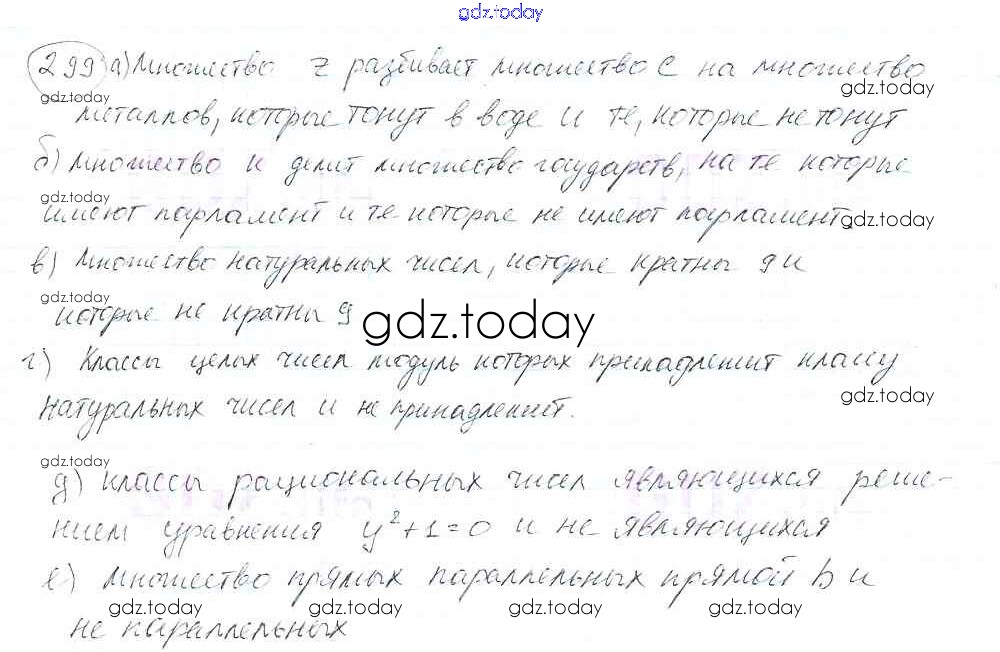 gdz.today
299 а) Множество Z разбивает множество С на множество
gdz.today gdz.today
металлов, которые тонут в воде и те, которые не тонут
б) множество К делит множество государств, на те которые
gdz.today
имеют парламент и те которые не имеют парламент.
gdz.today
в) Множество натуральных чисел, которые кратны 9 и
gdz.today
которые не кратны 9
gdz.today
г) Классы целых чисел модуль которых принадлежит классу
натуральных чисел и не принадлежит.
gdz.today
gdz.today
д) классы рациональных чисел являющихся реше-
нием уравнения y²+1=0 и не являющихся
е) множество прямых параллельных прямой b и
gdz.today gdz.today gdz.today gdz.today
не параллельных